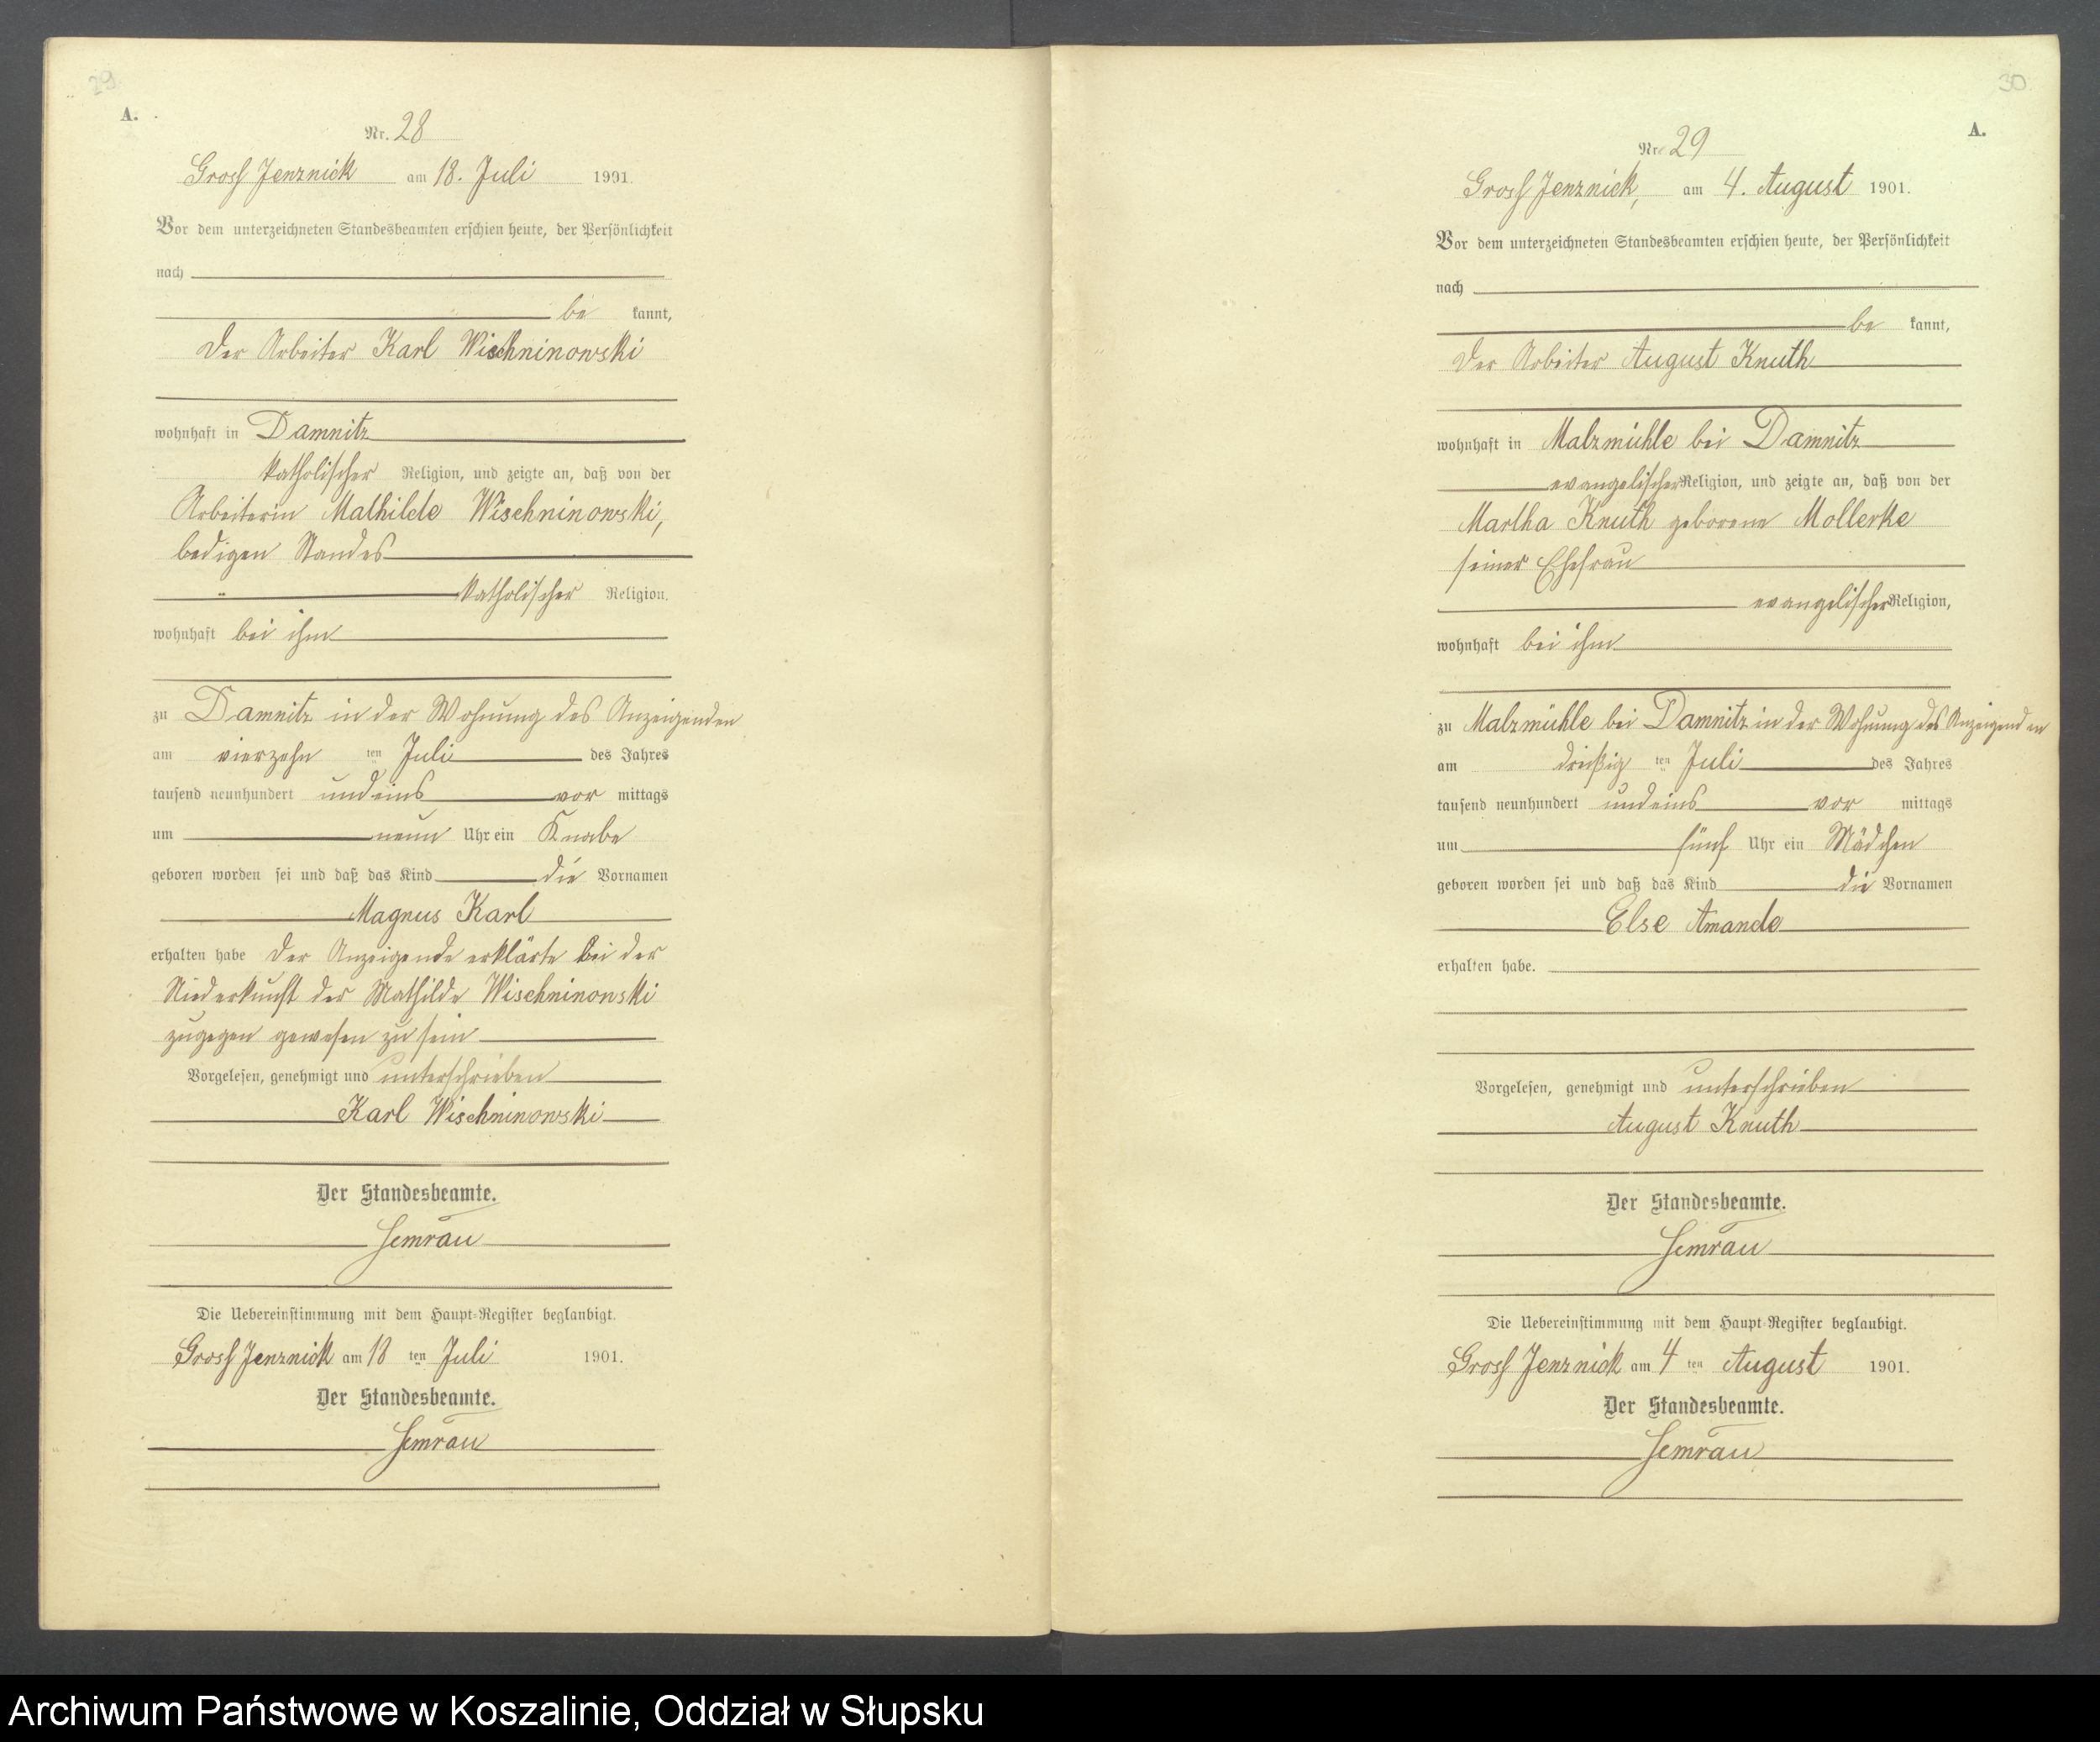 29
A.
Nr. 28
Gross Jenznick am 18. Juli 1901.
Vor dem unterzeichneten Standesbeamten erschien heute, der Persönlichkeit
nach
be kannt,
der Arbeiter Karl Wischninowski
wohnhaft in Damnitz
katholischer Religion, und zeigte an, daß von der
Arbeiterin Mathilde Wischninowski,
ledigen Standes
katholischer Religion,
wohnhaft bei ihm
zu Damnitz in der Wohnung des Anzeigenden
am vierzehn ten Juli des Jahres
tausend neunhundert undeins vor mittags
um neun Uhr ein Knabe
geboren worden sei und daß das Kind die Vornamen
Magnus Karl
erhalten habe der Anzeigende erklärte bei der
Niederkunft der Mathilde Wischninowski
zugegen gewesen zu sein
Vorgelesen, genehmigt und unterschrieben
Karl Wischninowski
Der Standesbeamte.
Semrau
Die Uebereinstimmung mit dem Haupt-Register beglaubigt.
Gross Jenznick am 18 ten Juli 1901.
Der Standesbeamte.
Semrau
30
A.
Nr. 29
Gross Jenznick, am 4. August 1901.
Vor dem unterzeichneten Standesbeamten erschien heute, der Persönlichkeit
nach
be kannt,
der Arbeiter August Knuth
wohnhaft in Malzmühle bei Damnitz
evangelischer Religion, und zeigte an, daß von der
Martha Knuth geborene Mollerke
seiner Ehefrau
evangelischer Religion,
wohnhaft bei ihm
zu Malzmühle bei Damnitz in der Wohnung des Anzeigenden
am dreißig ten Juli des Jahres
tausend neunhundert undeins vor mittags
um fünf Uhr ein Mädchen
geboren worden sei und daß das Kind die Vornamen
Else Amanda
erhalten habe.
Vorgelesen, genehmigt und unterschrieben
August Knuth
Der Standesbeamte.
Semrau
Die Uebereinstimmung mit dem Haupt-Register beglaubigt.
Gross Jenznick am 4 ten August 1901.
Der Standesbeamte.
Semrau
Archiwum Państwowe w Koszalinie, Oddział w Słupsku